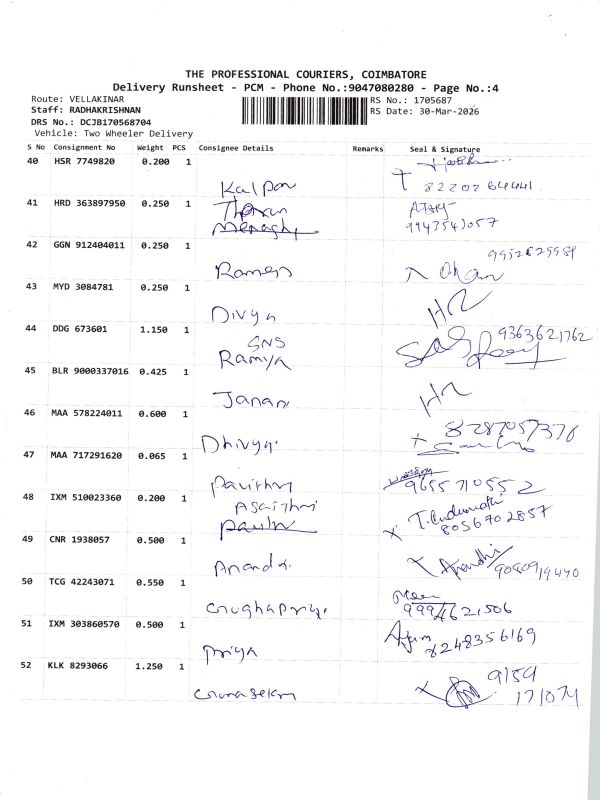 THE PROFESSIONAL COURIERS, COIMBATORE
Delivery Runsheet - PCM - Phone No.:9047080280 - Page No.:4
Route: VELLAKINAR
RS No.: 1705687
Staff: RADHAKRISHNAN
RS Date: 30-Mar-2026
DRS No.: DCJB170568704
Vehicle: Two Wheeler Delivery
S No Consignment No Weight PCS Consignee Details Remarks Seal & Signature
40 HSR 7749820 0.200 1
Kalpan
41 HRD 363897950 0.250 1
Tharun
9943543057
42 GGN 912404011 0.250 1
Ramesh
43 MYD 3084781 0.250 1
Divya
HR
44 DDG 673601 1.150 1
SNS
Ramya
9363621762
45 BLR 9000337016 0.425 1
Janani
HR
46 MAA 578224011 0.600 1
Dhivya
8287057376
47 MAA 717291620 0.065 1
Pavithri
9655710552
48 IXM 510023360 0.200 1
T. Indumathi
8056702857
49 CNR 1938057 0.500 1
Anandhi
50 TCG 42243071 0.550 1
51 IXM 303860570 0.500 1
Priya
8248356169
52 KLK 8293066 1.250 1
Gunasekar
9159
171074